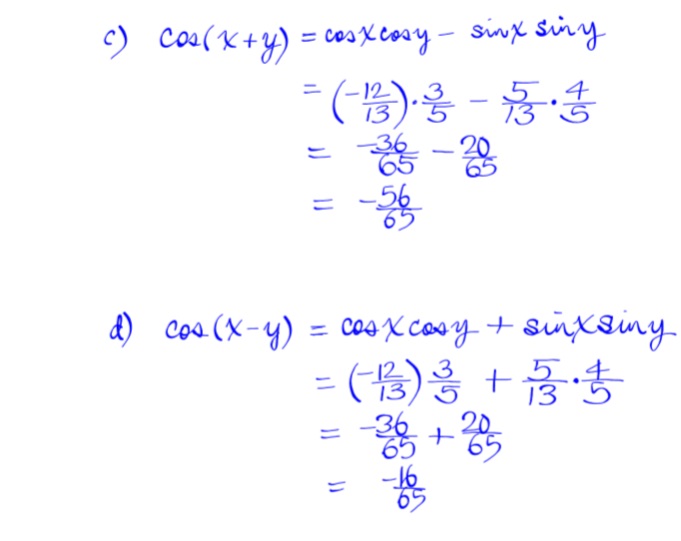 c) cos(x+y) = cosxcosy - sinx siny
= (-12/13)·3/5 - 5/13·4/5
= -36/65 - 20/65
= -56/65
d) cos(x-y) = cosxcosy + sinxsiny
= (-12/13) 3/5 + 5/13·4/5
= -36/65 + 20/65
= -16/65